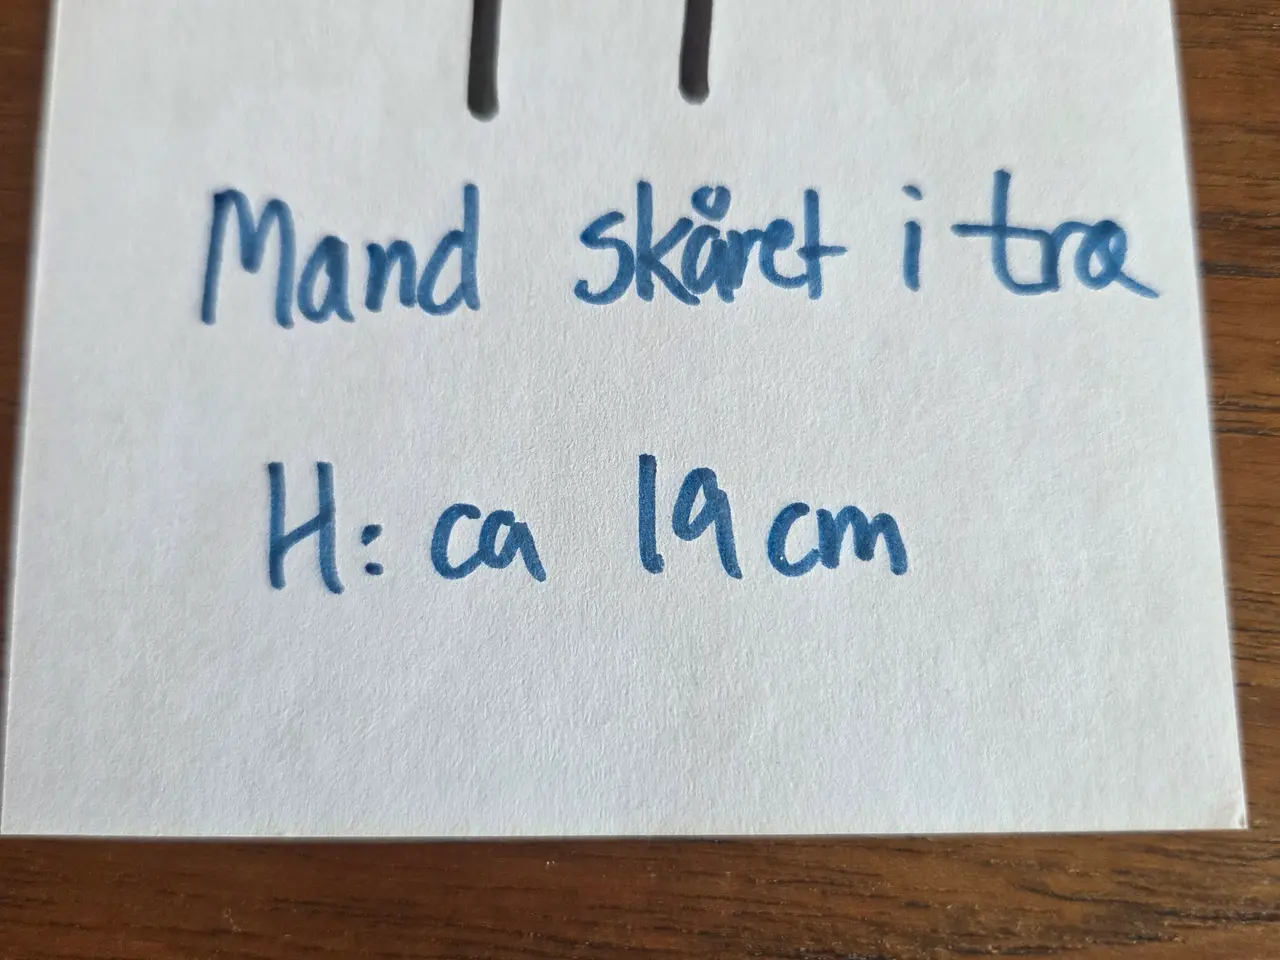 Mand skåret i træ
H: ca 19 cm